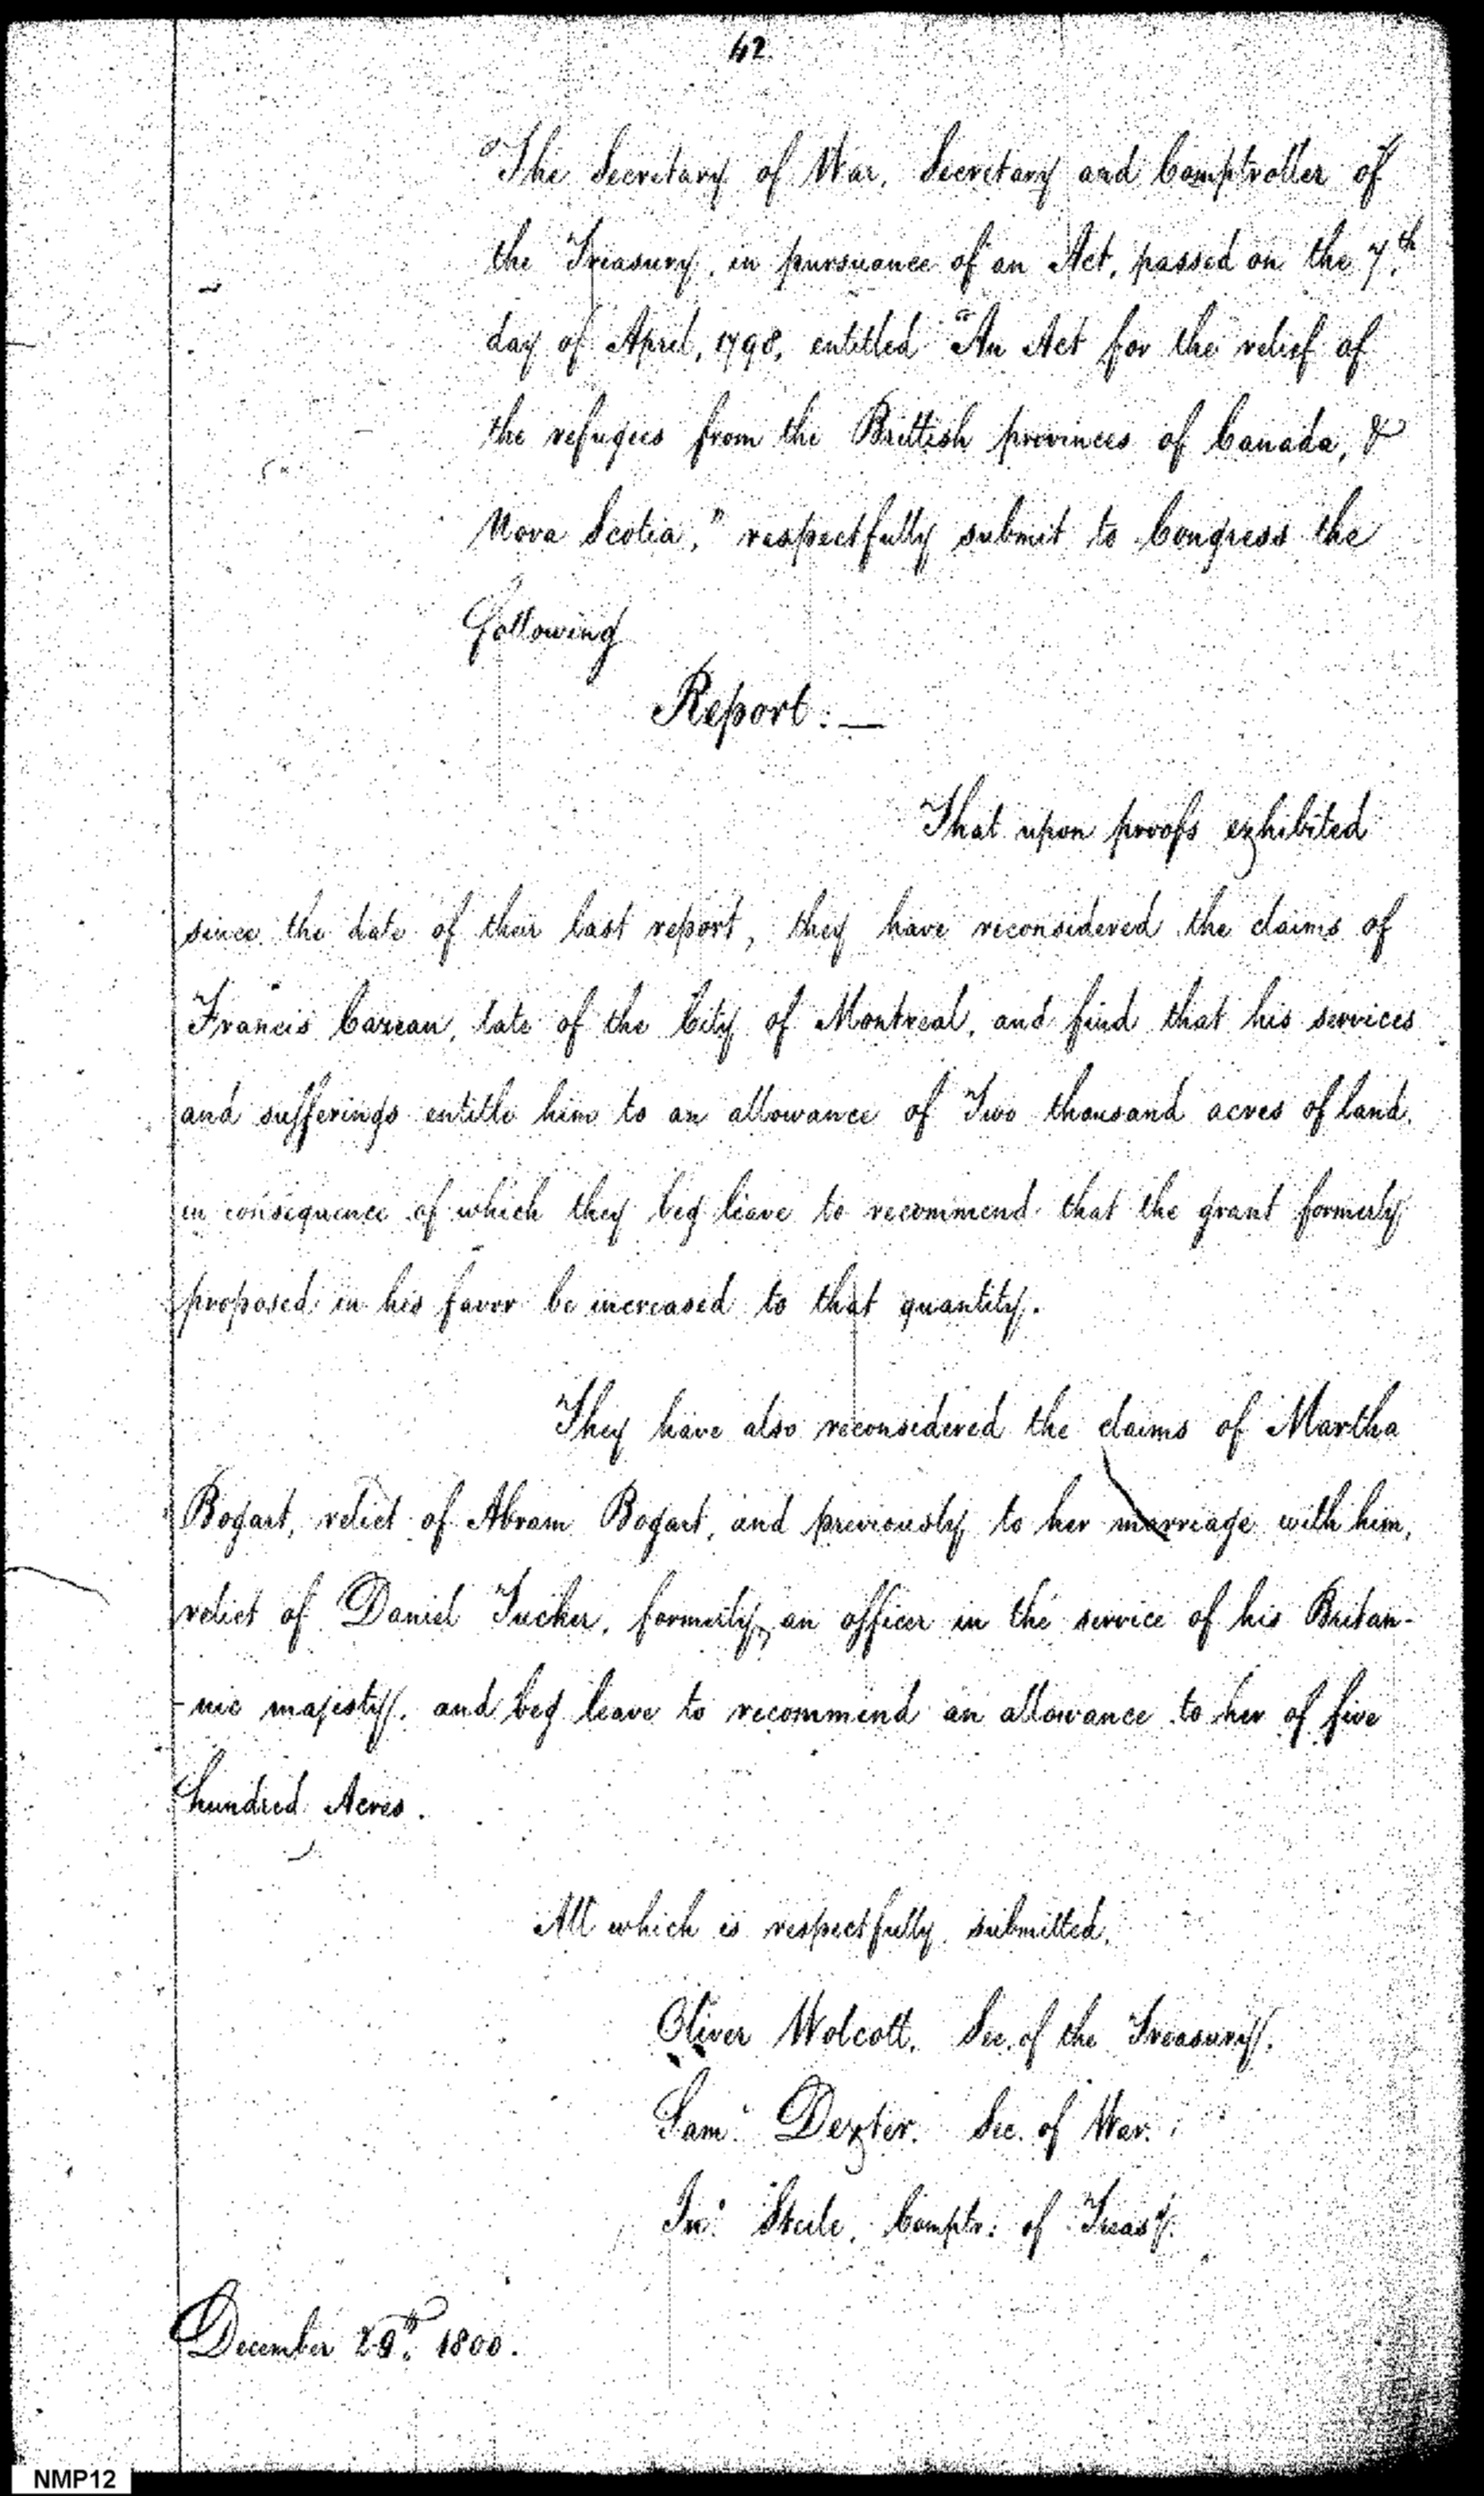 42
"The Secretary of War, Secretary and Comptroller of
the Treasury, in pursuance of an Act, passed on the 7th
day of April, 1798, entitled "An Act for the relief of
the refugees from the Brittish provinces of Canada, &
Nova Scotia," respectfully submit to Congress the
following
Report: —
That upon proofs exhibited
since the date of their last report, they have reconsidered the claims of
Francis Cazeau, late of the City of Montreal, and find that his services
and sufferings entitle him to an allowance of Two thousand acres of land,
in consequence of which they beg leave to recommend that the grant formerly
proposed in his favor be increased to that quantity.
They have also reconsidered the claims of Martha
Bogart, relict of Abram Bogart, and previously to her marriage with him,
relict of Daniel Tucker, formerly an officer in the service of his Britan-
-nic majesty, and beg leave to recommend an allowance to her of five
hundred Acres.
All which is respectfully submitted,
Oliver Wolcott, Sec. of the Treasury.
Sam: Dexter. Sec. of War.
Jno: Steele, Comptr: of Treasy.
December 29th, 1800.
NMP12